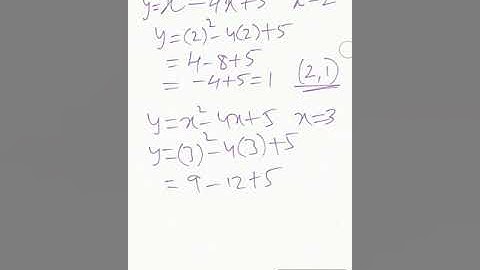 y=x²-4x+5 x=2
y=(2)²-4(2)+5
=4-8+5
=-4+5=1 (2,1)
y=x²-4x+5 x=3
y=(3)²-4(3)+5
=9-12+5